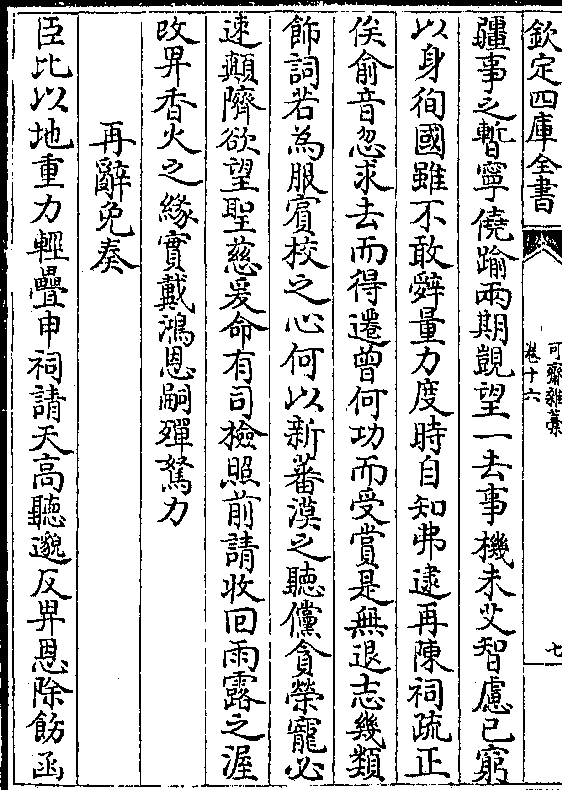 欽定四庫全書
可齋雜藁
卷十六
七
疆事之暫寧僥踰兩期覬望一去事機未艾智慮已窮
以身徇國雖不敢辭量力度時自知弗逮再陳祠疏正
俟俞音忽求去而得遷曾何功而受賞是無退志幾類
飾詞若為服賓校之心何以新蕃漢之聽儻貪榮寵必
速顛隮欲望聖慈爰命有司檢照前請收回雨露之渥
改畀香火之緣實戴鴻恩嗣殫駑力
再辭免奏
臣比以地重力輕疊申祠請天高聽邈反畀恩除飭函